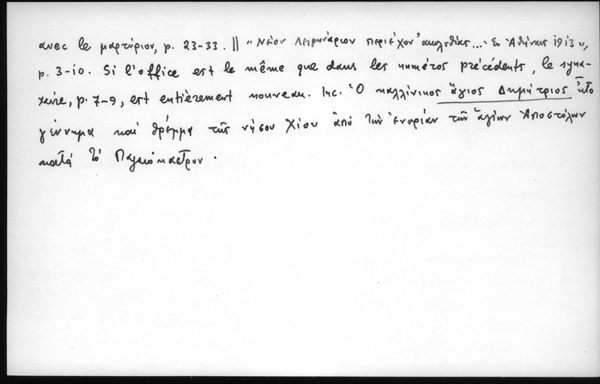 avec le μαρτύριον, p. 23-33. || "Νέον Λειμωνάριον περιέχον ἀκολουθίας... Ἐν Ἀθήναις 1913",
p. 3-10. Si l'office est le même que dans les numéros précédents, le syna-
xaire, p. 7-9, est entièrement nouveau. Inc. Ὁ καλλίνικος ἅγιος Δημήτριος ἦτο
γέννημα καὶ θρέμμα τῆς νήσου Χίου ἀπὸ τὴν ἐνορίαν τῶν ἁγίων Ἀποστόλων
κατὰ τὸ Παλαιόκαστρον.